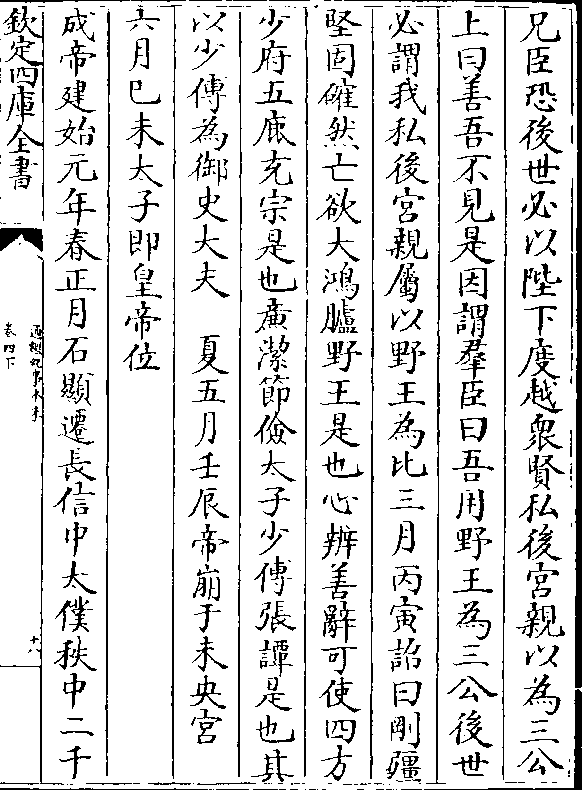 兄臣恐後世必以陛下度越衆賢私後宮親以為三公
上曰善吾不見是因謂羣臣曰吾用野王為三公後世
必謂我私後宮親屬以野王為比三月丙寅詔曰剛彊
堅固確然亡欲大鴻臚野王是也心辨善辭可使四方
少府五鹿充宗是也廉潔節儉太子少傅張譚是也其
以少傅為御史大夫　夏五月壬辰帝崩于未央宮
六月已未太子即皇帝位
成帝建始元年春正月石顯遷長信中太僕秩中二千
欽定四庫全書
通鑑紀事本末
卷四下
十八